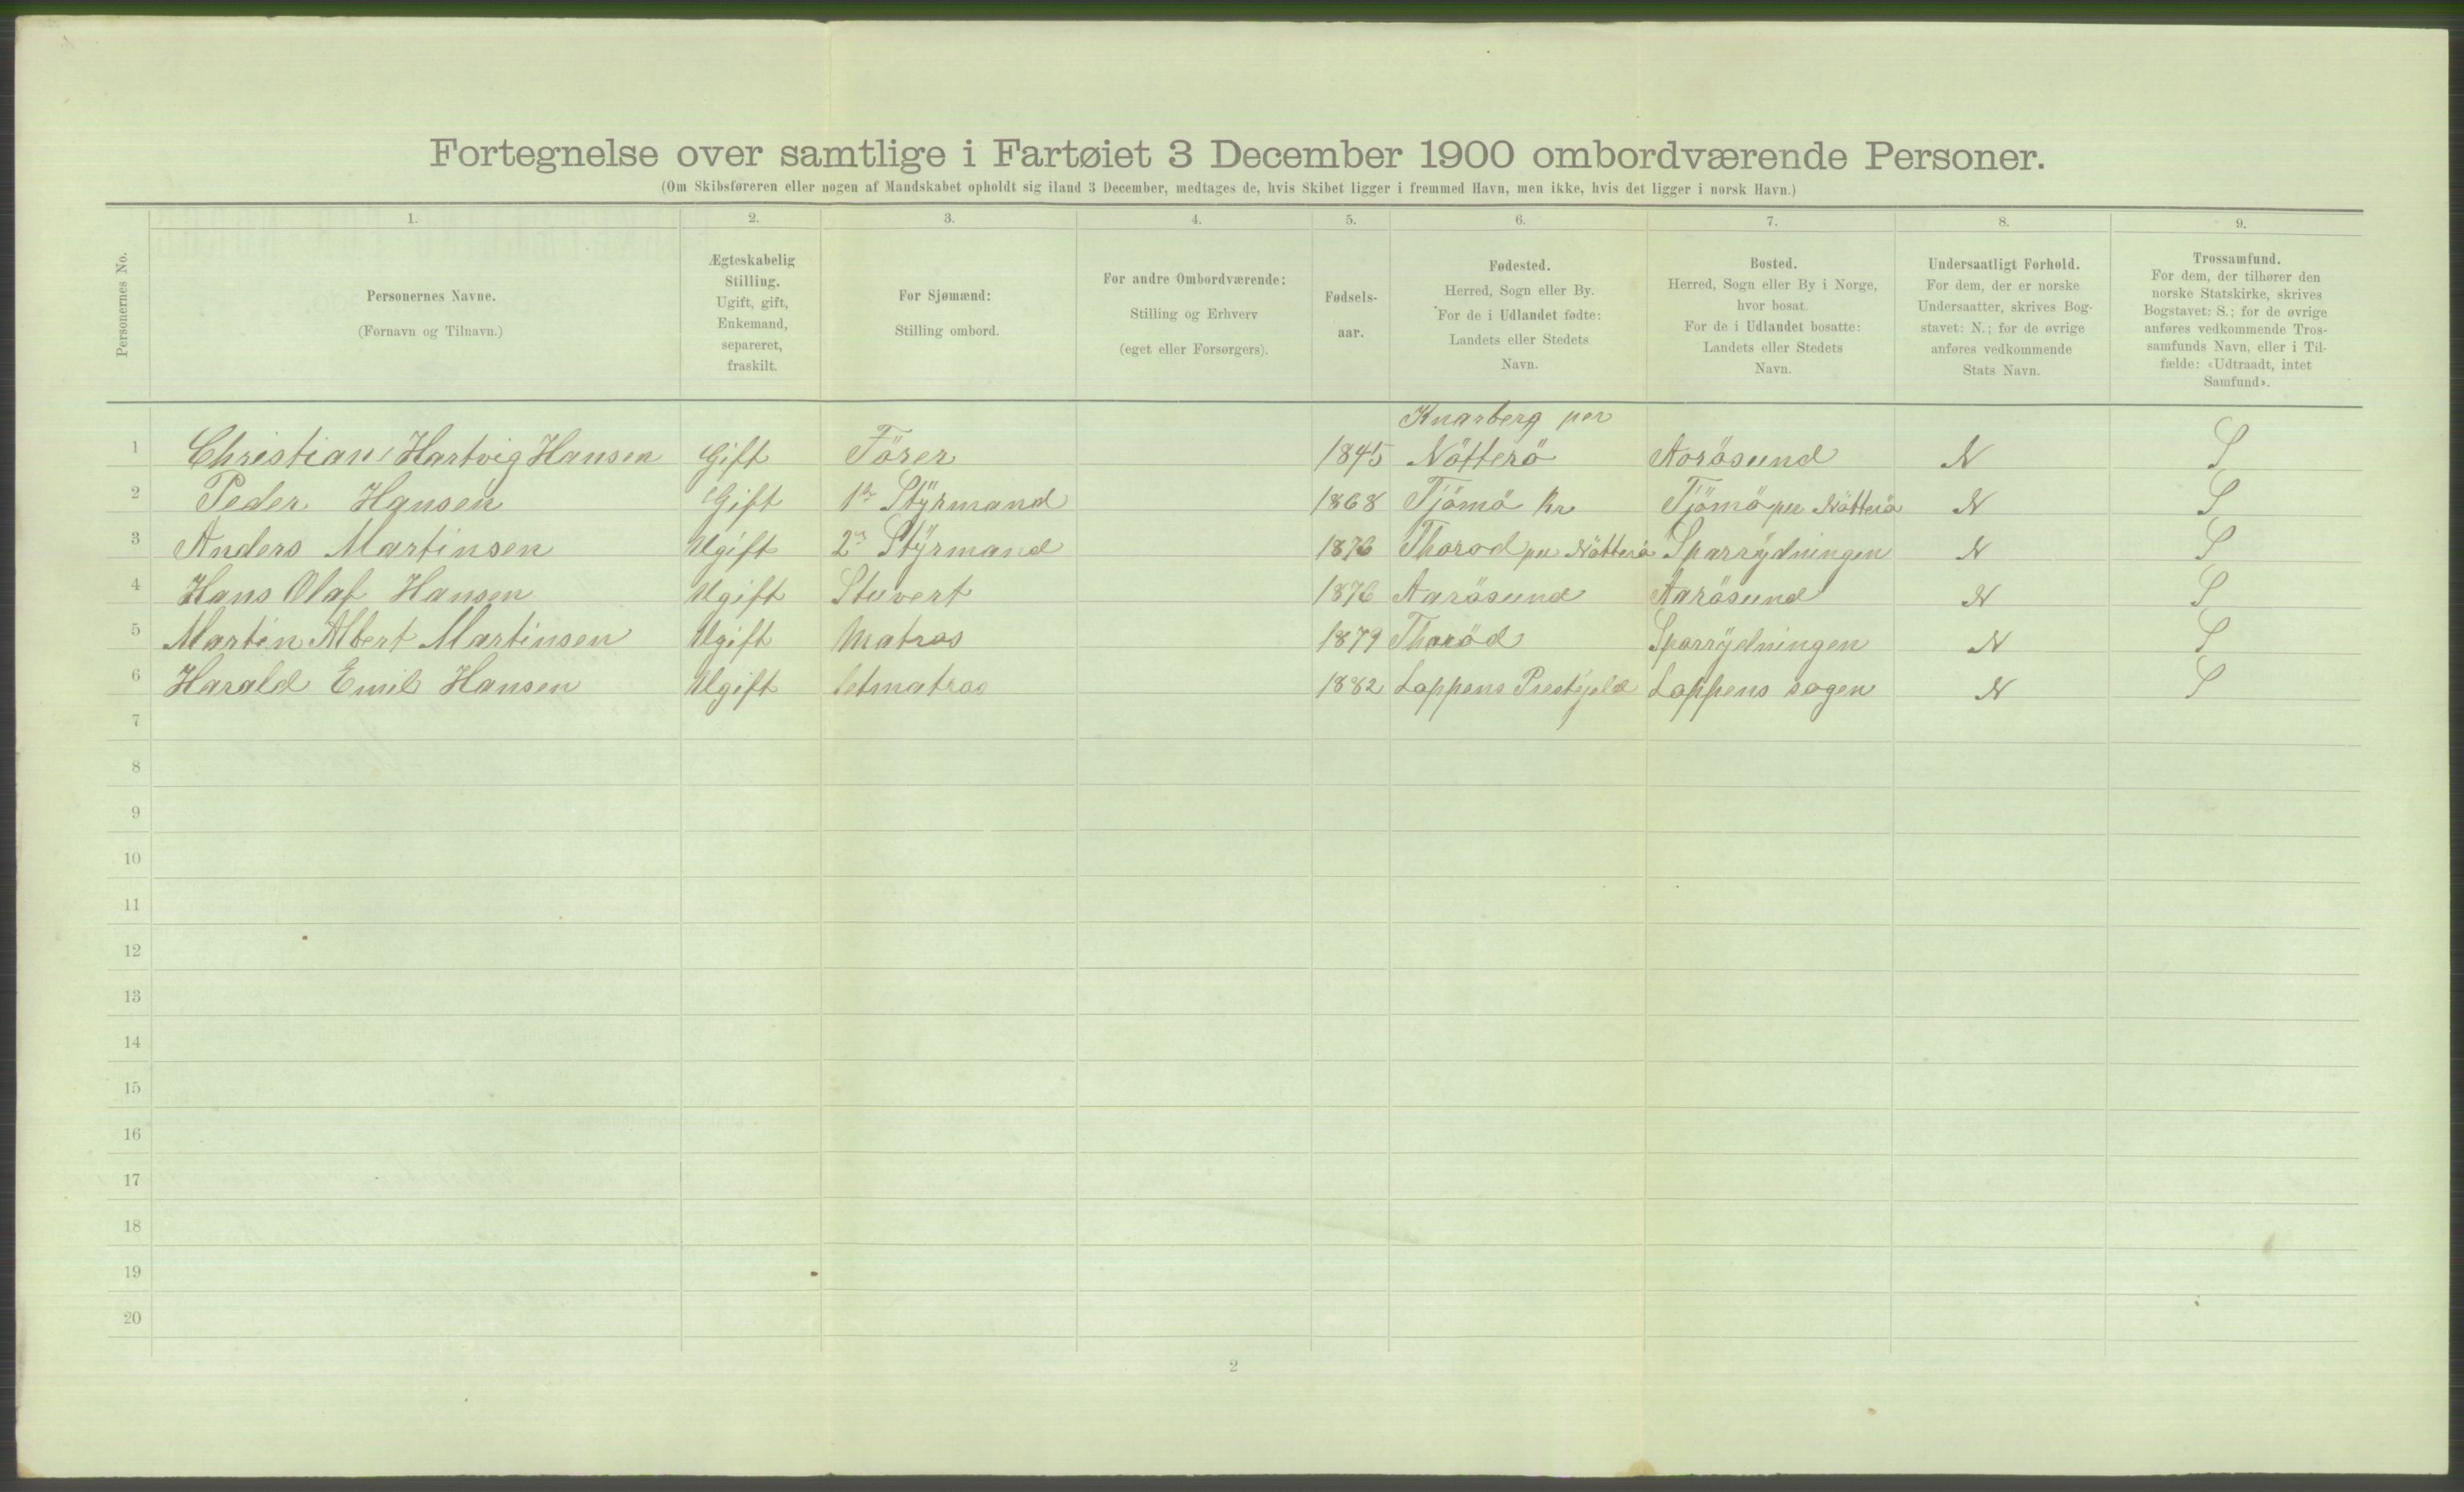 Fortegnelse over samtlige i Fartøiet 3 December 1900 ombordværende Personer.
(Om Skibsføreren eller nogen af Mandskabet opholdt sig iland 3 December, medtages de, hvis Skibet ligger i fremmed Havn, men ikke, hvis det ligger i norsk Havn.)
Personernes No.
1. 2. 3. 4. 5. 6. 7. 8. 9.
Personernes Navne.
(Fornavn og Tilnavn.)
Ægteskabelig
Stilling.
Ugift, gift,
Enkemand,
separeret,
fraskilt.
For Sjømænd:
Stilling ombord.
For andre Ombordværende:
Stilling og Erhverv
(eget eller Forsørgers).
Fødsels-
aar.
Fødested.
Herred, Sogn eller By.
For de i Udlandet fødte:
Landets eller Stedets
Navn.
Bosted.
Herred, Sogn eller By i Norge,
hvor bosat.
For de i Udlandet bosatte:
Landets eller Stedets
Navn.
Undersaatligt Forhold.
For dem, der er norske
Undersaatter, skrives Bog-
stavet: N.; for de øvrige
anføres vedkommende
Stats Navn.
Trossamfund.
For dem, der tilhører den
norske Statskirke, skrives
Bogstavet: S.; for de øvrige
anføres vedkommende Tros-
samfunds Navn, eller i Til-
fælde: «Udtraadt, intet
Samfund».
Knarberg per
1 Christian Hartvig Hansen Gift Förer 1845 Nötterö Aorösund N S
2 Peder Hansen Gift 1ste Stÿrmand 1868 Tjömö Tjömö per Nötterö N S
3 Anders Martinsen Ugift 2n Stÿrmand 1876 Thorod per Nötterö Sparrÿdningen N S
4 Hans Olaf Hansen Ugift Stuvert 1876 Aarösund Aarösund N S
5 Martin Albert Martinsen Ugift Matros 1879 Thoröd Sparrÿdningen N S
6 Harald Emil Hansen Ugift letmatros 1882 Loppens Prestijeld Loppens sogen N S
7
8
9
10
11
12
13
14
15
16
17
18
19
20
2